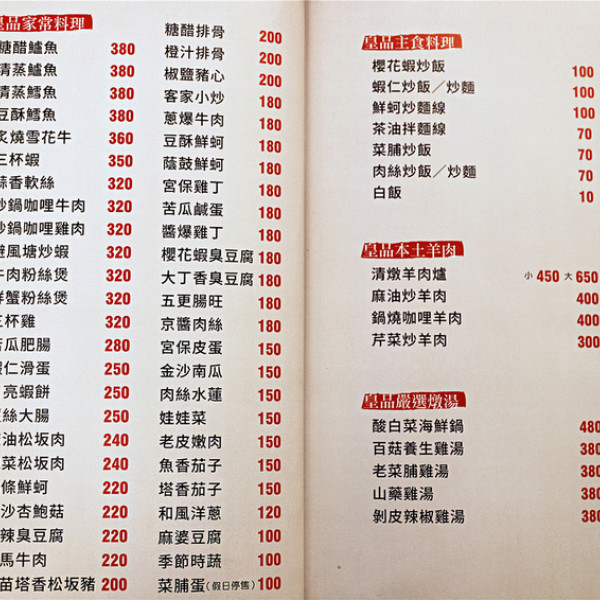 皇品家常料理
糖醋鱸魚 380
清蒸鱸魚 380
清蒸鱈魚 380
豆酥鱈魚 380
炙燒雪花牛 360
三杯蝦 350
蒜香軟絲 320
沙鍋咖哩牛肉 320
沙鍋咖哩雞肉 320
避風塘炒蝦 320
牛肉粉絲煲 320
鮮蟹粉絲煲 320
三杯雞 320
苦瓜肥腸 280
蝦仁滑蛋 250
月亮蝦餅 250
絲大腸 250
油松坂肉 240
菜松坂肉 240
條鮮蚵 220
沙杏鮑菇 220
辣臭豆腐 220
馬牛肉 220
苗塔香松坂豬 200
糖醋排骨 200
橙汁排骨 200
椒鹽豬心 200
客家小炒 180
蔥爆牛肉 180
豆酥鮮蚵 180
蔭鼓鮮蚵 180
宮保雞丁 180
苦瓜鹹蛋 180
醬爆雞丁 180
櫻花蝦臭豆腐 180
大丁香臭豆腐 180
五更腸旺 180
京醬肉絲 180
宮保皮蛋 150
金沙南瓜 150
肉絲水蓮 150
娃娃菜 150
老皮嫩肉 150
魚香茄子 150
塔香茄子 150
和風洋蔥 120
麻婆豆腐 100
季節時蔬 100
菜脯蛋(假日停售) 100
皇品主食料理
櫻花蝦炒飯 100
蝦仁炒飯／炒麵 100
鮮蚵炒麵線 100
茶油拌麵線 70
菜脯炒飯 70
肉絲炒飯／炒麵 70
白飯 10
皇品本土羊肉
清燉羊肉爐 小 450 大 650
麻油炒羊肉 400
鍋燒咖哩羊肉 400
芹菜炒羊肉 300
皇品嚴選燉湯
酸白菜海鮮鍋 480
百菇養生雞湯 380
老菜脯雞湯 380
山藥雞湯 380
剝皮辣椒雞湯 380